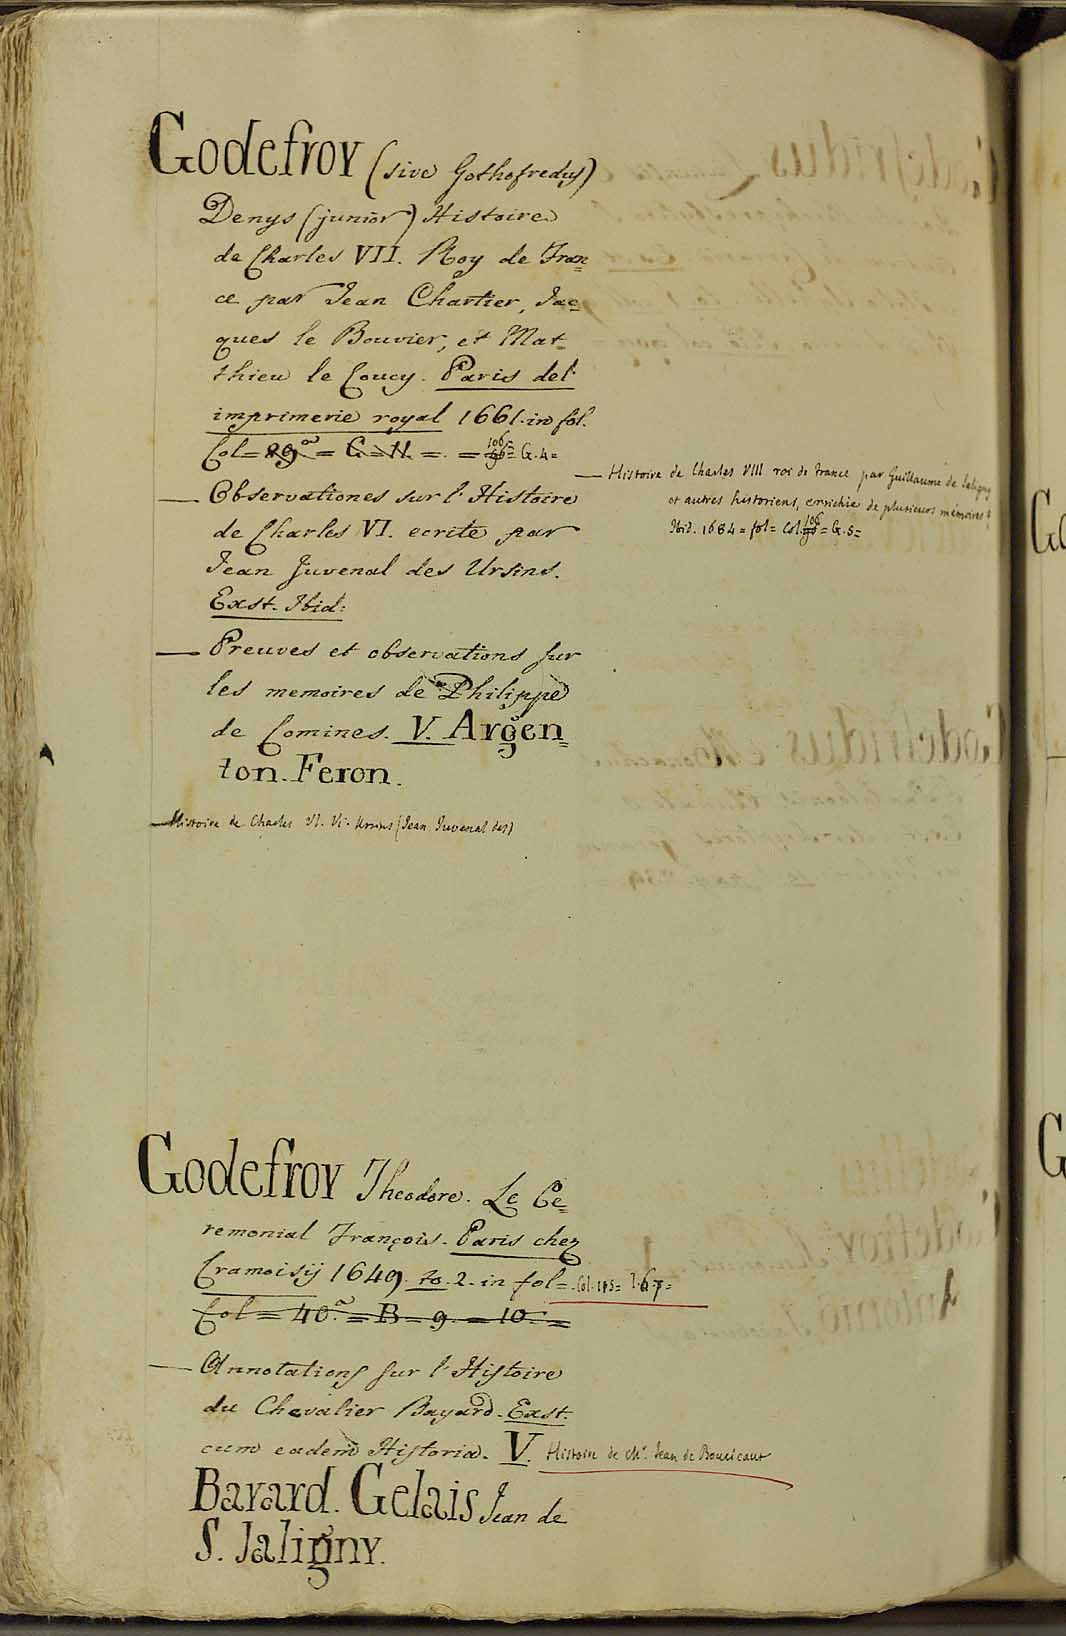 Godefroy (sive Gothofredus)
Denys (junior) Histoire
de Charles VII. Roy de Fran=
ce par Jean Chartier, Jac=
ques le Bouvier, et Mat=
thieu le Coucy. Paris del'
imprimerie royal 1661. in fol.
Col = 89 = C = 11 = . = 106 = G. 4 =
— Observationes sur l'Histoire
de Charles VI. ecrite par
Jean Juvenal des Ursins.
Exst. Ibid:
— Preuves et observations sur
les memoires de Philippe
de Comines. V. Argen=
ton. Feron.
— Histoire de Charles VI. V. Ursins (Jean Juvenal des)
— Histoire de Charles VIII roi de France par Guillaume de Jaligny
et autres historiens, enrichie de plusieurs mémoires
Ibid. 1684 = fol = Col. 106 = G. 5 =
Godefroy Theodore. Le Ce=
remonial François. Paris chez
Cramoisij 1649. to. 2. in fol = Col. 115 = 6. 7 =
Col = 40.a = B = 9. = 10. =
— Annotations sur l'Histoire
du Chevalier Bayard. Exst.
cum eadem Historia. V. Histoire de Mr. Jean de Boucicaut
Bayard. Gelais Jean de
S. Jaligny.
Go
G